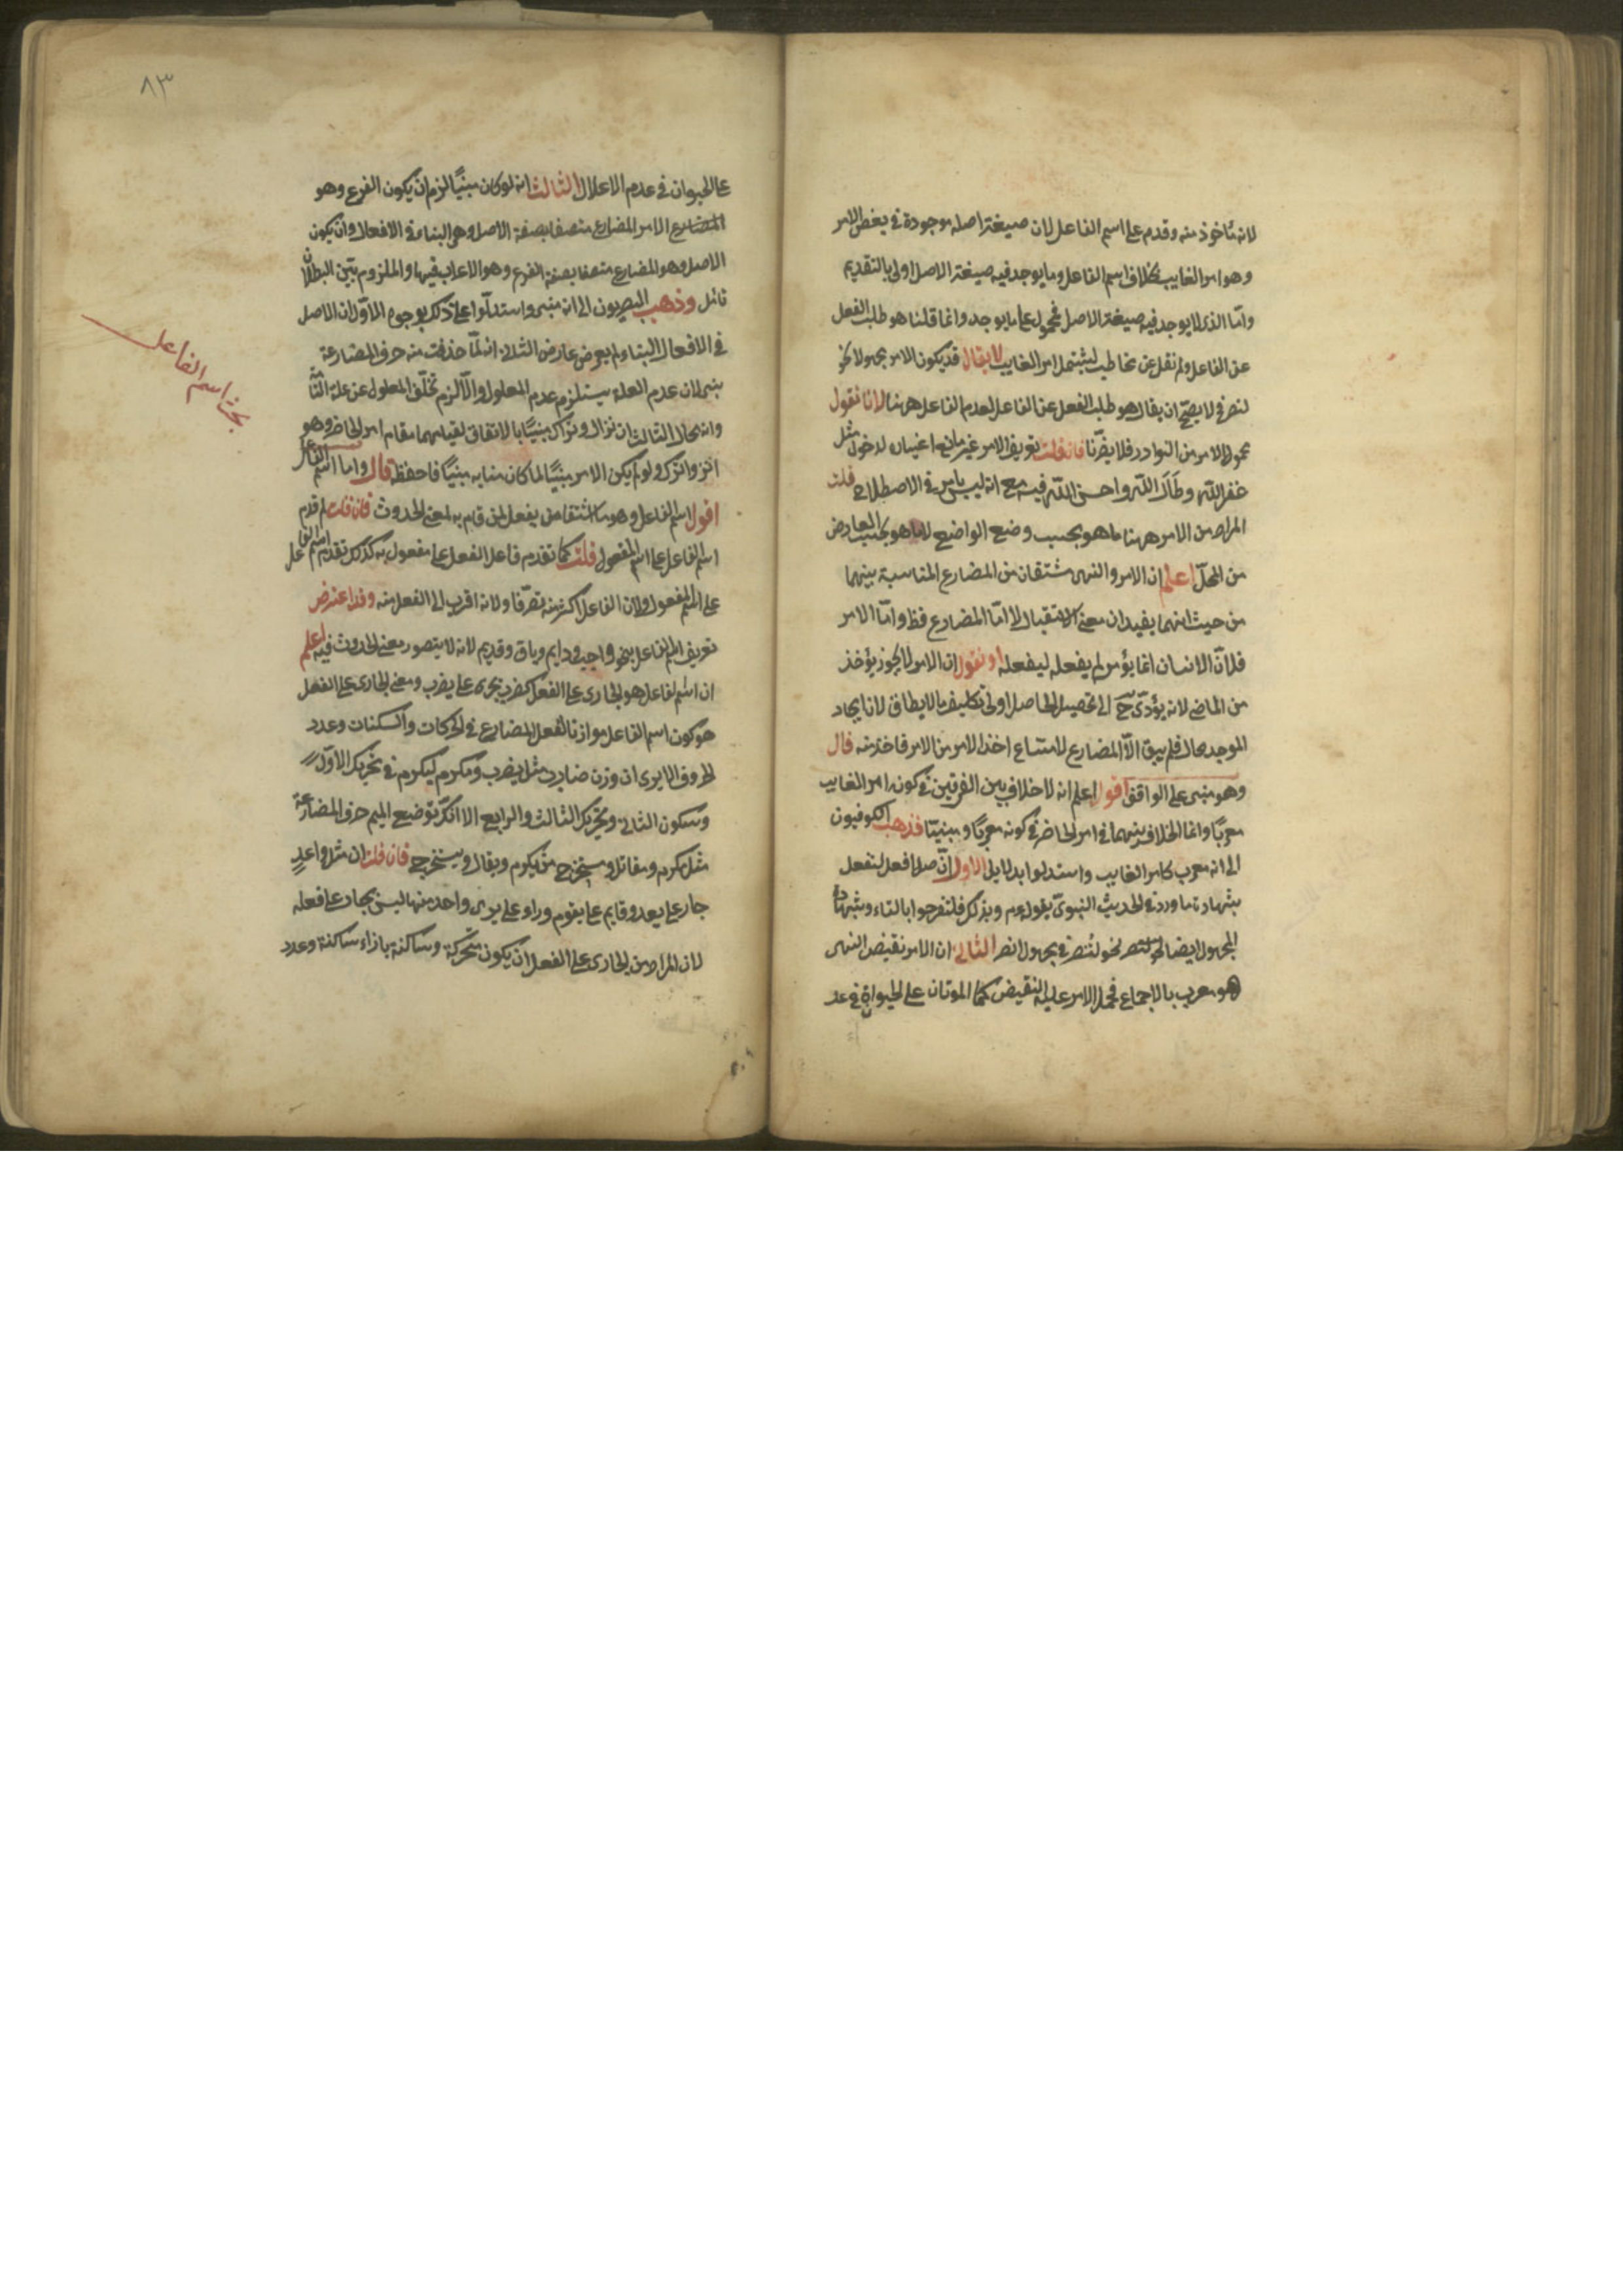 لانه مأخوذ منه وقدم على اسم الفاعل لان صيغة اصله موجودة في بعض الامر
وهو امر الغايب بخلاف اسم الفاعل وما يوجد فيه صيغة الاصل اولى بالتقديم
وامّا الذى لا يوجد فيه صيغة الاصل فمحمول على ما يوجد وانما قلنا هو طلب الفعل
عن الفاعل ولم نقل عن مخاطب ليشتمل امر الغايب لا يقال قد يكون الامر مجهولا نحو
لنصر في لا يصحّ ان يقال هو طلب الفعل عن الفاعل لعدم الفاعل ههنا لانا نقول
مجهول الامر من النوادر فلا يضرّنا فان قلت تعريف الامر غير مانع اغياره لدخول مثل
غفر الله وطال الله واحسن الله فيه مع انه ليس بامر في الاصطلاح قلت
المراد من الامر ههنا ما هو بحسب وضع الواضع لا ما هو بحسب العارض
من المحلّ اعلم ان الامر والنهى مشتقان من المضارع المناسبة بينهما
من حيث انهما يفيدان معنى الاستقبال لا امّا المضارع فظ وامّا الامر
فلانّ الانسان انما يؤمر لم يفعله ليفعله او نقول ان الامر لا يجوز يؤخذ
من الماضى لانه يؤدّى ح الى تحصيل الحاصل او لى تكليف ما لا يطاق لان ايجاد
الموجد محال فلم يبق الاّ المضارع لامتناع اخذ الامر من الامر فاخذ منه قال
وهو مبنى على الواقف اقول اعلم انه لا خلاف بين الفرقين في كون امر الغايب
معربًا وانما الخلاف بينهما في امر الحاضر في كونه معربًا ومبنيّا فذهب الكوفيون
الى انه معرب كامر الغايب واستدلوا بدلايل الاول انّ اصل افعل لتفعل
بشهادة ما ورد في الحديث النبوىّ بقوله عم وبذلك فلتفرحوا بالتاء وبشهادة
المجهول ايضا نحو لتنصر نحو لتنصر في مجهول انصر الثانى ان الامر نقيض النهى
وهو معرب بالاجماع فحمل الامر عليه النقيض كما الموتان على الحيوان في عد
٨٣
على الحيوان في عدم الاعلال الثالث انه لو كان مبنيًا لزم ان يكون الفرع وهو
المضارع الامر المضارع متصفا بصفة الاصل وهى البناء في الافعال وان يكون
الاصل وهو المضارع متصفا بصفة الفرع وهو الاعراب فيها والملزوم بيّن البطلان
تامل وذهب البصريون الى انه مبنى واستدلّوا على ذلك بوجوه الاوّل ان الاصل
في الافعال البناء لم يعرض عارض الثانى انه لمّا حذفت منه حرف المضارعة
بنى لان عدم العلة يستلزم عدم المعلول والاّ لزم تخلّف المعلول عن علته التامّة
وانه محال الثالث ان نزال وتراك مبنيًا بالاتفاق لقيامهما مقام امر الحاضر وهو
انزل واترك ولو لم يكن الامر مبنيًا لما كان منابه مبنيًا فاحفظ قال واما اسم الفاعل
اقول اسم الفاعل وهو ما اشتق من يفعل لمن قام به بمعنى الحدوث فان قلت لم قدم
اسم الفاعل على اسم المفعول قلت كما تقدم فاعل الفعل على مفعول به كذلك تقدم اسم الفاعل
على اسم المفعول ولان الفاعل اكثر منه تصرّفا ولانه اقرب الى الفعل منه وقد اعترض
تعريف اسم الفاعل بنحو واجب ودايم وباق وقديم لانه لا يتصور معنى الحدوث فيه اعلم
ان اسم الفاعل هو الجارى على الفعل كضارب يجرى على يضرب ومعنى الجارى على الفعل
هو كون اسم الفاعل موازنا لفعل المضارع في الحركات والسكنات وعدد
الحروف الا يرى ان وزن ضارب مثل يضرب ومكرم ليكرم في تحريك الاوّل
وسكون الثانى وتحريك الثالث والرابع الا انّك توضع الميم حرف المضارعة
مثل مكرم ومقاتل ومستخرج من يكرم ويقال ويستخرج فان قلت ان مثل واعد
جار على يعد وقايم على يقوم وراو على يرى واحد منها ليس بجار على فعله
لان المراد من الجارى على الفعل ان يكون متحركة وساكنة بازاء ساكنة وعدد
بحث اسم الفاعل